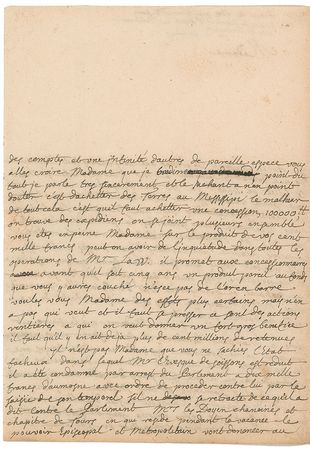 des comptes et une Infinité dautres de pareille espece vous
alles croire Madame que je point du
tout je parle tres sincerement et le
douter cest dachetter des Terres au Mississipi le malheur
de tout cela c'est quil faut achetter une concession, 100000 ll
on trouve des expediens on se joint plusieurs ensemble
vous etes en peine Madame sur le produit de vos cent
mille francs peut on avoir de linquietude dans toutes les
operations de Mr. Lass. il promet aux concessionnaires
avant quil soit cinq ans un produit pareil au fonds
que vous y aures couché nesce pas de l'or en barre
voules vous Madame des effets plus certains mais nen
a pas qui veut et il faut se presser ce sont des actions
rentieres a qui on veut donner un fort gros benefice
il faut quil y en ait deja plus de cent millions de retenues
il n'est pas Madame que vous ne sachies l'Etat
facheux dans lequel Mr. l'Eveque de soissons est reduit
il a eté condamné par arrest du Parlement a dix mille
francs daumosne avec ordre de proceder contre lui par la
saisie de son temporel sil ne se retracte de ce quil a
dit contre le Parlement Mrs. les Doyen chanoines et
chapitre de Tours en qui reside pendant la vacance le
pouvoir Episcopal et Metropolitain vont denoncer au